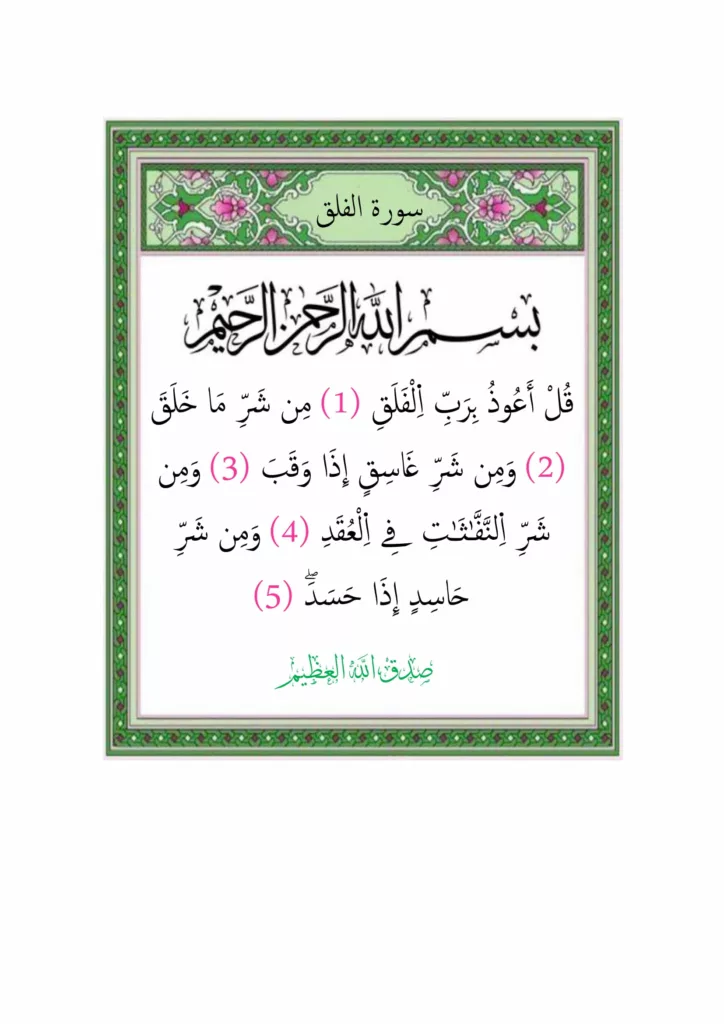 سورة الفلق
بسم الله الرحمن الرحيم
قُلْ أَعُوذُ بِرَبِّ اِ۬لْفَلَقِ (1) مِن شَرِّ مَا خَلَقَ
(2) وَمِن شَرِّ غَاسِقٍ إِذَا وَقَبَ (3) وَمِن
شَرِّ اِ۬لنَّفَّٰثَٰتِ فِے اِ۬لْعُقَدِ (4) وَمِن شَرِّ
حَاسِدٍ إِذَا حَسَدَۖ (5)
صدق الله العظيم